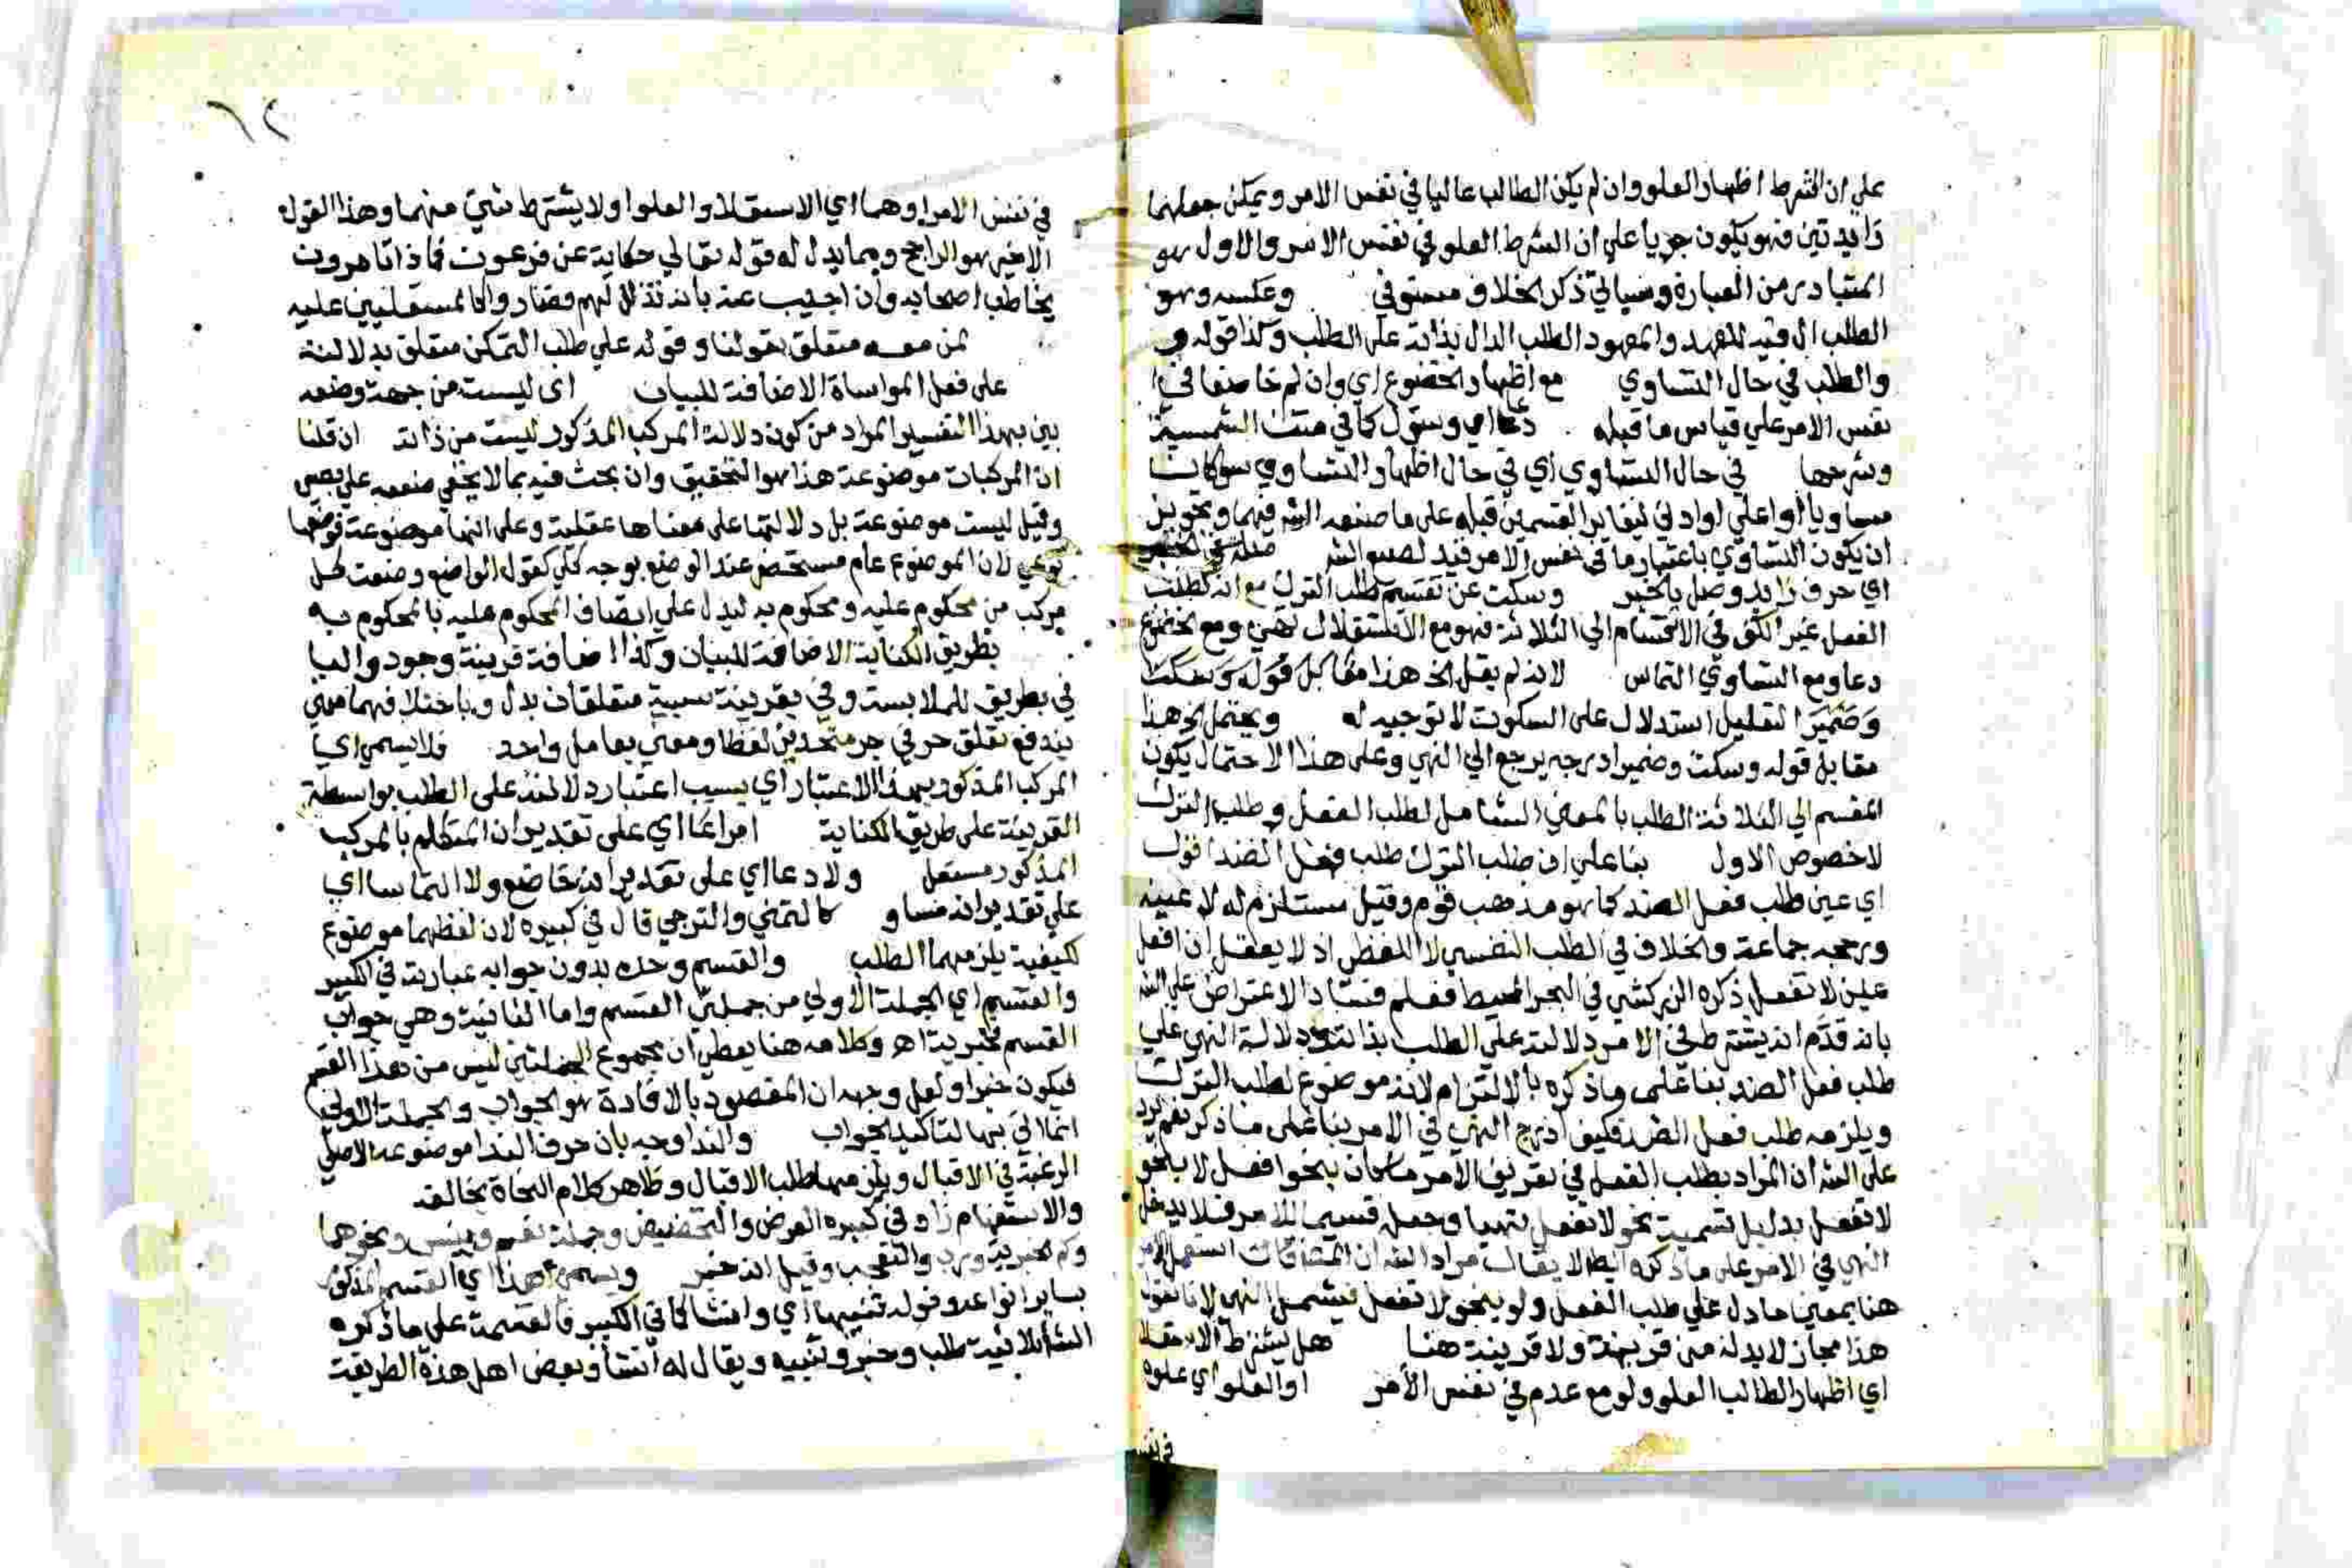 على ان الشرط اظهار العلو وان لم يكن الطالب عاليا في نفس الامر ويمكن جعلهما
زايدتين فهو يكون جريا على ان الشرط العلو في نفس الامر والاول هو
المتبادر من العبارة وسياتي ذكر الخلاف مستوفي وعكسه وهو
الطلب ال فيه للعهد والمعهود الطلب الدال بذاته على الطلب وكذا قوله
والطلب في حال التساوي مع اظهار الخضوع اي وان لم خاضعا في
نفس الامر على قياس ما قبله دعا اي وسؤل كما في متن الشمسية
وشرحها في حال التساوي اي في حال اظهار التساوي سوا كان
مساويا او اعلى او ادني ليغاير القسمين قبله على ما صنعه الش فيهما وتجويز
ان يكون التساوي باعتبار ما في نفس الامر فيه لصنيع الش صلة في الخبر
اي حرف زايد وصل بالخبر وسكت عن تقسيم طلب الترك مع انه لطلب
الفصل غير الكف في الانقسام الي الثلاثة فهو مع الاستقلال نهي ومع الخضوع
دعا ومع التساوي التماس لانه لم يقل الخ هذا مقابل قوله وسكت
وضمير التعليل استدلال على السكوت لا توجيه له ويحتمل الخ هذا
مقابل قوله وسكت وضمير ادرجه يرجع الي النهي وعلى هذا الاحتمال يكون
المقسم الي الثلاثة الطلب بالمعني الشامل لطلب الفعل وطلب الترك
لاخصوص الاول بنا على ان طلب الترك طلب فعل الضد اقول
اي عين طلب فعل الضد كما هو مذهب قوم وقيل مستلزم له لا عينه
ورجحه جماعة والخلاف في الطلب النفسي لا اللفظي اذ لا يعقل ان افعل
عين لا تفعل ذكره الزركشي في البحر المحيط فعلم فساد الاعتراض على الش
بانه قدم انه يشترط في الامر دلالته على الطلب بذاته ودلالة النهي على
طلب فعل الضد بنا على ما ذكره بالالتزام لانه موضوع لطلب الترك
ويلزمه طلب فعل الضد فكيف ادرج النهي في الامر بنا على ما ذكر نعم يرد
على الش ان المراد بطلب الفعل في تعريف الامر ما كان بنحو افعل لا بنحو
لا تفعل بدليل تسمية نحو لا تفعل نهيا وجعله قسيما للامر فلا يدخل
النهي في الامر على ما ذكره ايضا لا يقال مراد الش ان المشتقات استعمل الامر
هنا بمعني ما دل على طلب الفعل ولو بنحو لا تفعل فيشمل النهي لانا نقول
هذا مجاز لا بد له من قرينة ولا قرينة هنا هل يشترط الاستعلا
اي اظهار الطالب العلو ولو مع عدم في نفس الامر او العلو اي علوه
في نفس
١٢
في نفس الامر او هما اي الاستعلا والعلو او لا يشترط شي منهما وهذا القول
الاخير هو الراجح ومما يدل له قوله تعالي حكاية عن فرعون فماذا تامرون
يخاطب اصحابه وان اجيب عنه بانه تذلل لهم فصار وا كالمستعلين عليه
لمن معه متعلق بقولنا وقوله على طلب التمكن متعلق بدلالته
على فعل المواساة الاضافة للبيان اي ليست من جهة وضعه
بين بهذا التفسير المراد من كون دلالة المركب المذكور ليست من ذاته ان قلنا
ان المركبات موضوعة هذا هو التحقيق وان بحث فيه بما لا يخفي ضعفه على بصير
وقيل ليست موضوعة بل دلالتها على معناها عقلية وعلى انها موضوعة فوضعها
نوعي لان الموضوع عام مستحضر عند الوضع بوجه كلي كقول الواضع وضعت كل
مركب من محكوم عليه ومحكوم به ليدل على اتصاف المحكوم عليه بالمحكوم به
بطريق الكناية الاضافة للبيان وكذا اضافة قرينة وجود والبا
في بطريق للملابسة وفي بقرينة سببية متعلقان بدل وباختلافهما معني
يندفع تعلق حرفي جر متحدين لفظا ومعني بعامل واحد فلا يسمي اي
المركب المذكور بهذا الاعتبار اي بسبب اعتبار دلالته على الطلب بواسطة
القرينة على طريق الكناية امرا عااي على تقدير ان المتكلم بالمركب
المذكور مستعل ولا دعا اي على تقدير انه خاضع ولا التماسا اي
على تقدير انه مساو كالتمني والترجي قال في كبيره لان لفظهما موضوع
لكيفية يلزمهما الطلب والقسم وحده بدون جوابه عبارته في الكبير
والقسم اي الجملة الاولي من جملتي القسم واما الثانية وهي جواب
القسم فخبرية اه وكلامه هنا يعطي ان مجموع الجملتين ليس من هذا القسم
فيكون خبرا ولعل وجهه ان المقصود بالافادة هو الجواب والجملة الاولي
انما اتي بها لتاكيد الجواب والندا وجه بان حرف الندا موضوعه الاصلي
الرغبة في الاقبال ويلزمها طلب الاقبال وظاهر كلام النحاة يخالفه
والاستفهام زاد في كبيره العرض والتحضيض وجملة نعم وبيس ونحوهما
وكم الخبرية ورب والتعجب وقيل انه خبر ويسمي هذا اي القسم المذكور
بساير انواعه وقوله تنبيها اي وانشا كما في الكبير فالقسمة على ما ذكره
الش ثلاثية طلب وخبر وتنبيه ويقال له انشا وبعض اهل هذه الطريقة